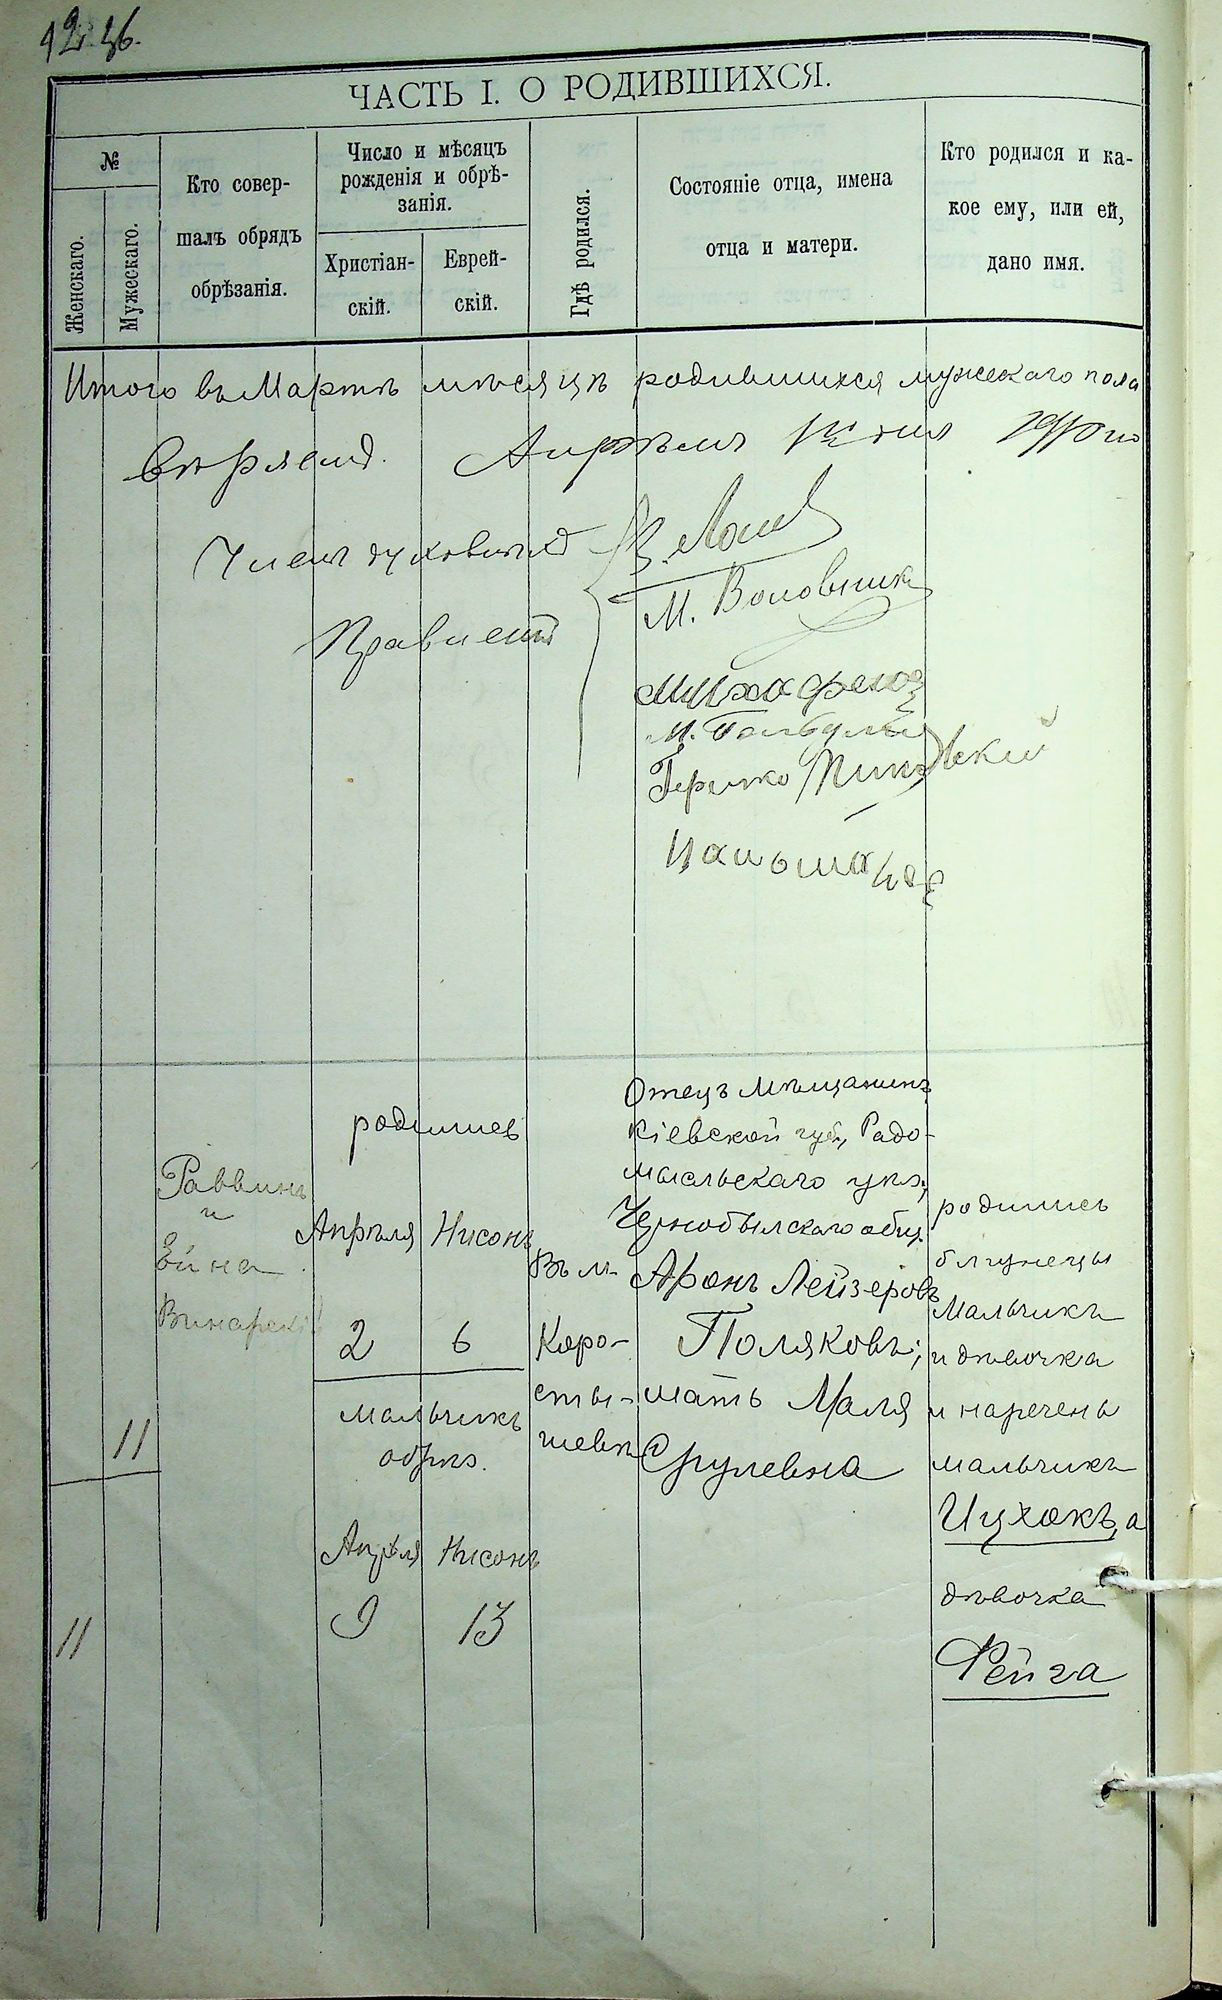 ЧАСТЬ I. О РОДИВШИХСЯ.
№
Женскаго.
Мужескаго.
Кто совер-
шалъ обрядъ
обрѣзанія.
Число и мѣсяцъ
рожденія и обрѣ-
занія.
Христіан-
скій.
Еврей-
скій.
Гдѣ родился.
Состояніе отца, имена
отца и матери.
Кто родился и ка-
кое ему, или ей,
дано имя.
Итого въ Мартѣ мѣсяцѣ родившихся мужескаго пола
Апрѣля дня
Члены духовнаго
Правленія
М. Воловник
Гершко
11
11
Раввинъ
и
Винарскій
родились
Апрѣля Нисонъ
2 6
мальчикъ
обрѣз.
Апрѣля Нисонъ
9 13
Въ м.
Коро-
сты-
шевѣ
Отецъ мѣщанинъ
Кіевской губ., Радо-
мысльскаго уѣз.,
Чернобыльскаго общ.
Аронъ Лейзеровъ
Поляковъ;
мать Маля
Срулевна
родились
близнецы
мальчикъ
и дѣвочка
и наречены
мальчикъ
Ицхокъ, а
дѣвочка
Фейга